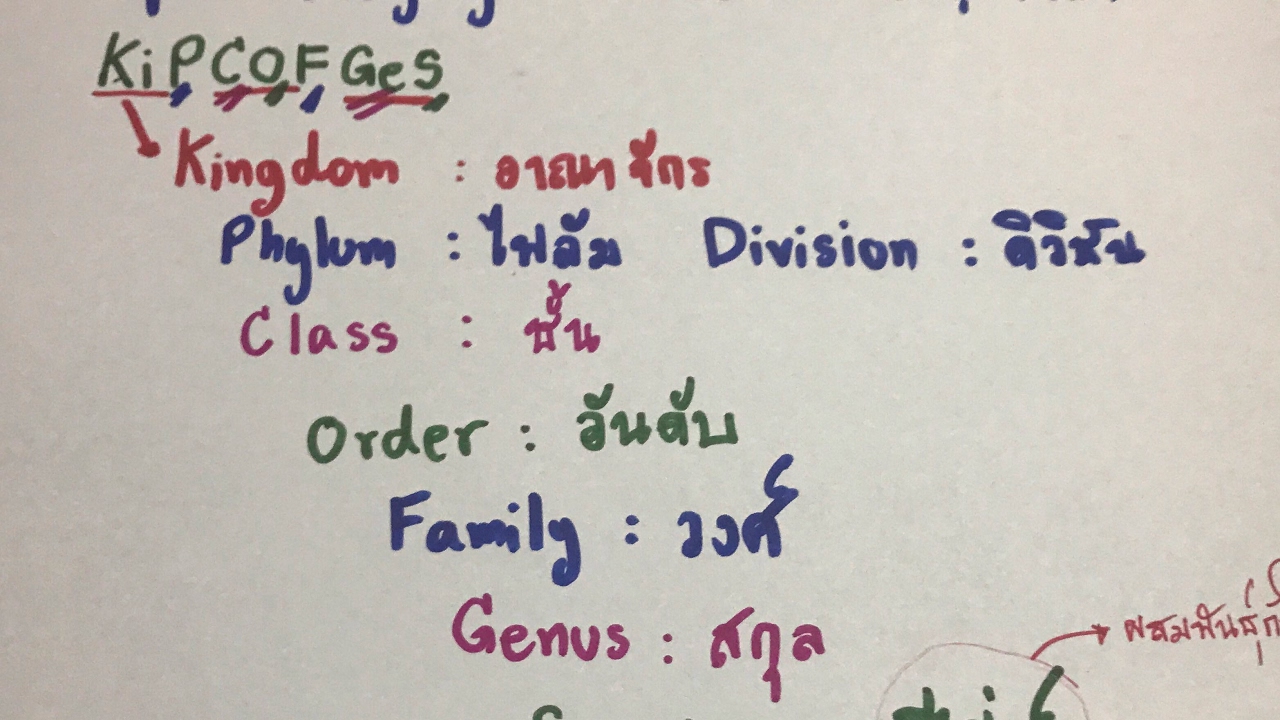 KiPCOFGeS
Kingdom : อาณาจักร
Phylum : ไฟลัม Division : ดิวิชัน
Class : ชั้น
Order : อันดับ
Family : วงศ์
Genus : สกุล